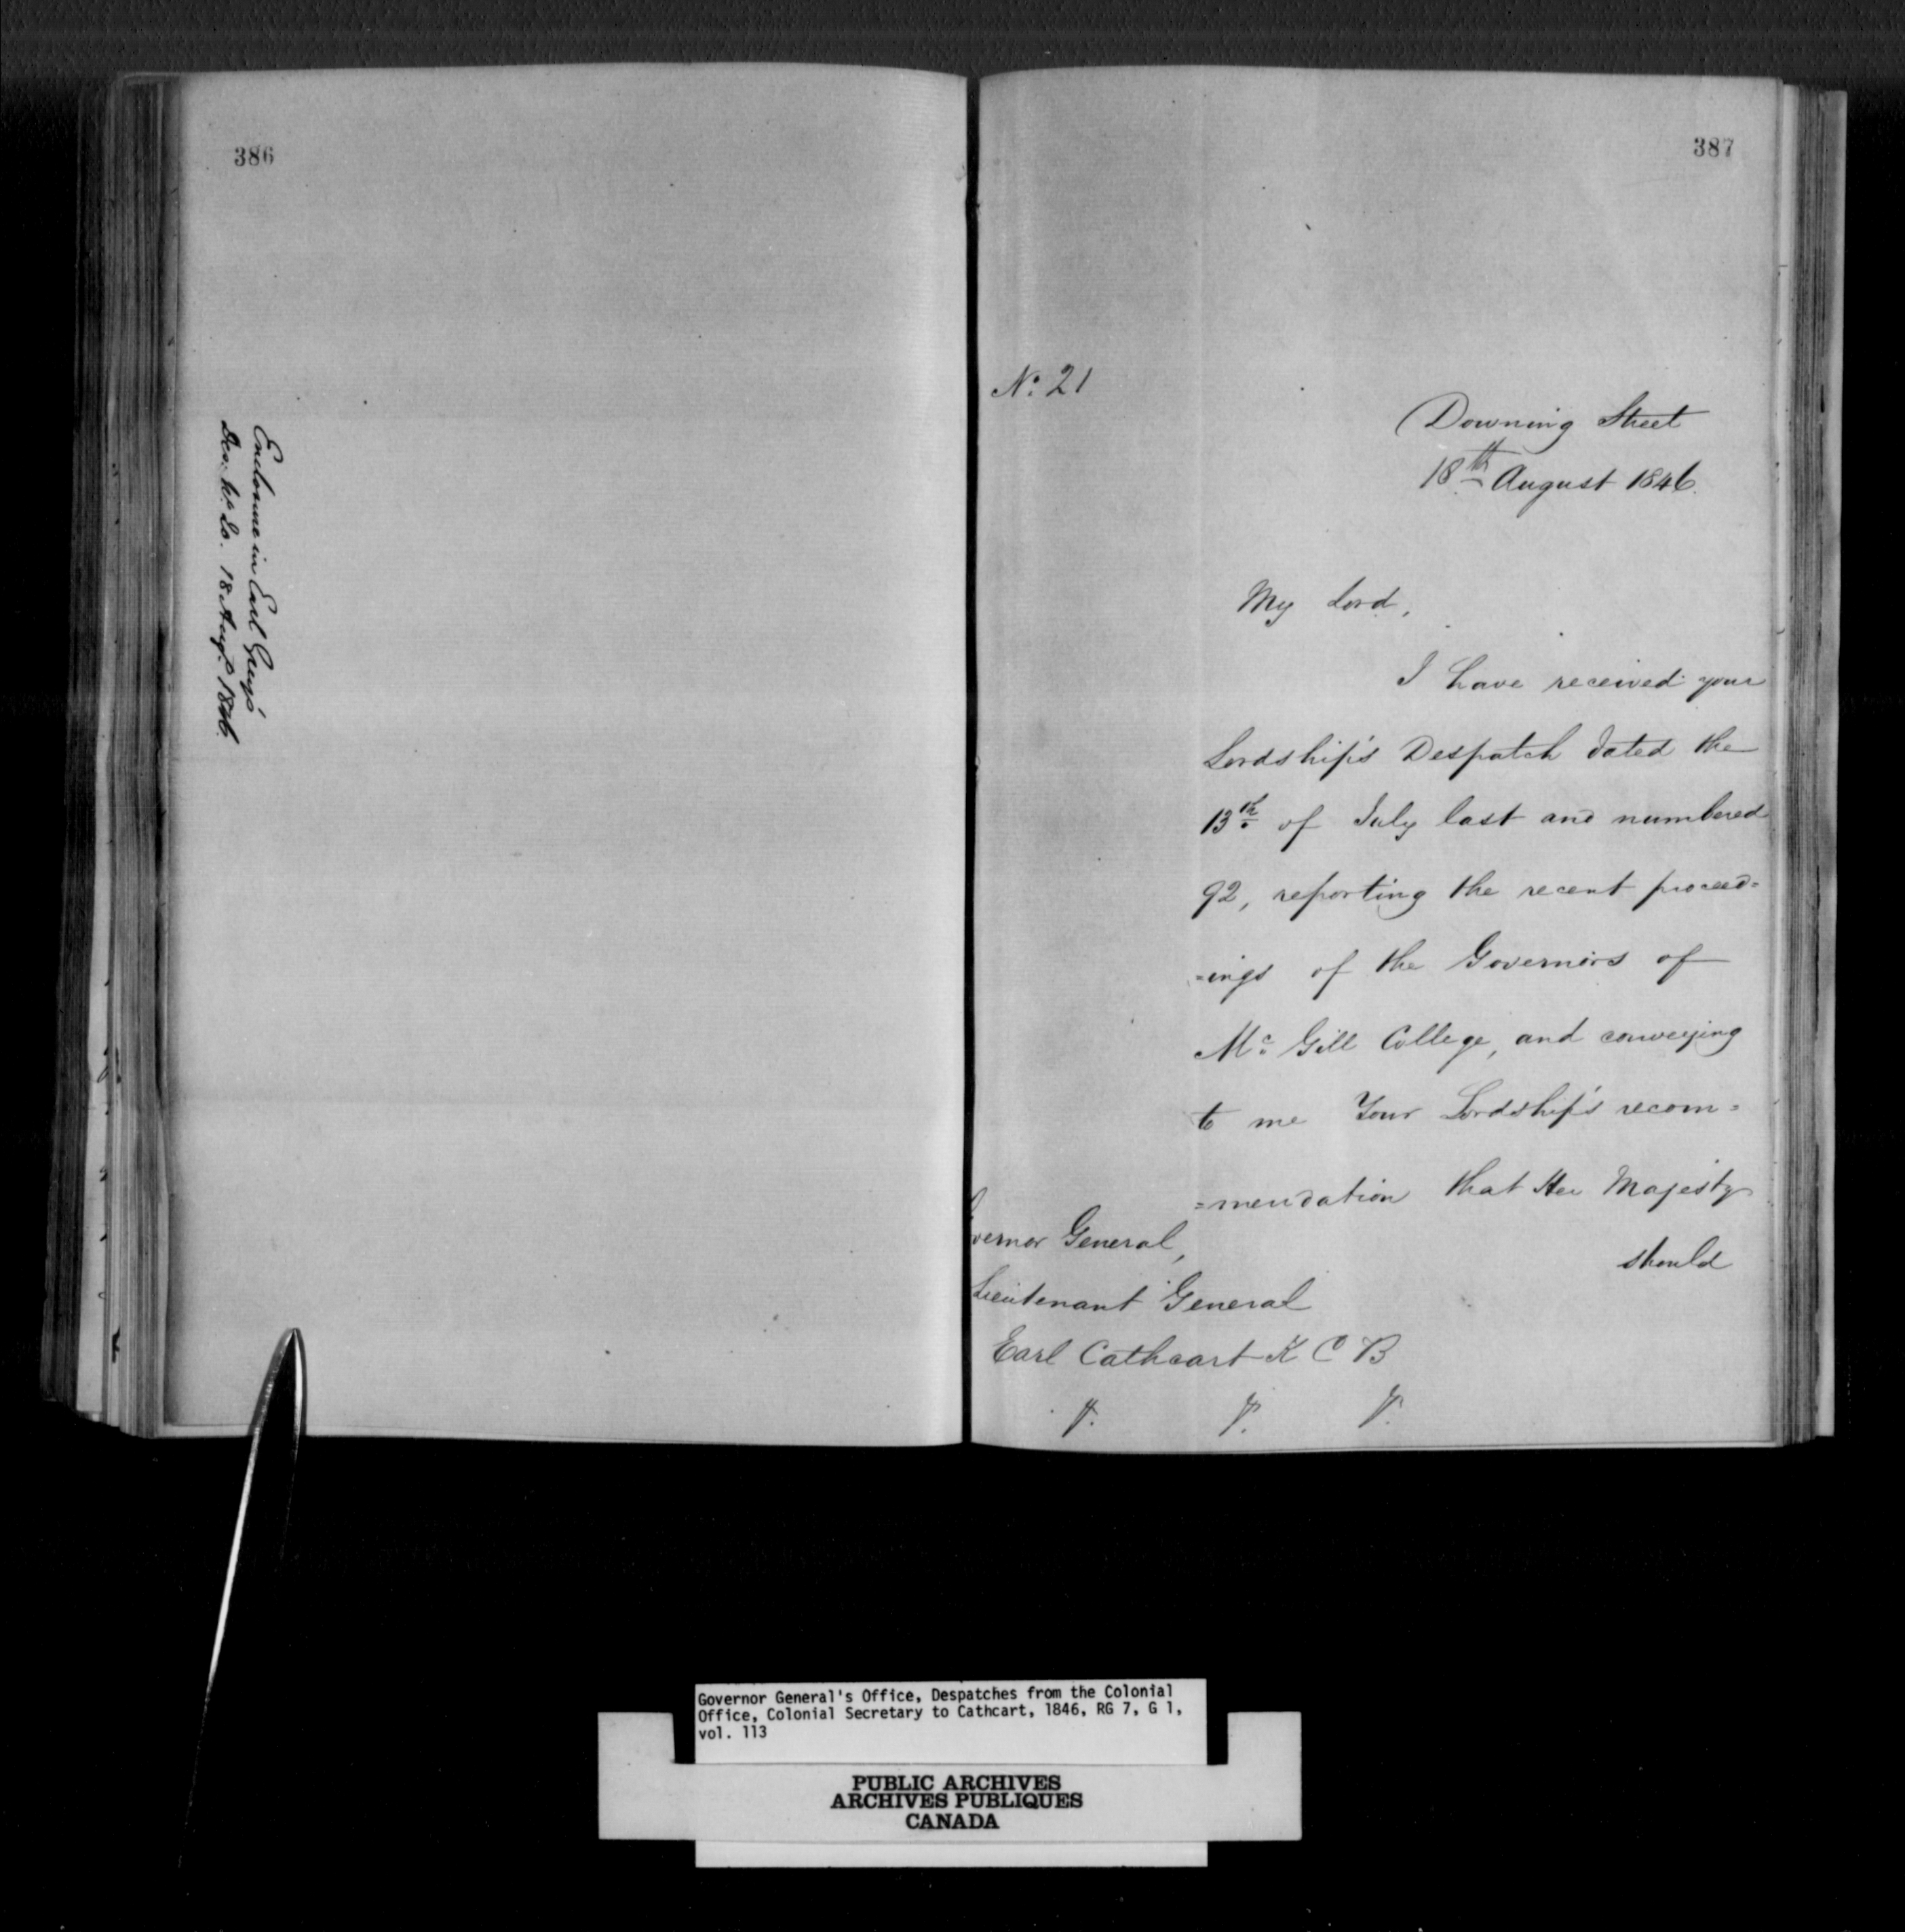 386
Enclosure in Earl Grey's
Des. No. 20. 18 Augt. 1846.
387
No. 21
Downing Street
18th August 1846.
My Lord,
I have received your
Lordship's Despatch dated the
13th of July last and numbered
92, reporting the recent proceed=
=ings of the Governors of
Mc. Gill College, and conveying
to me Your Lordship's recom=
=mendation that Her Majesty
should
vernor General,
Lieutenant General
Earl Cathcart K C B
Governor General's Office, Despatches from the Colonial
Office, Colonial Secretary to Cathcart, 1846, RG 7, G 1,
vol. 113
PUBLIC ARCHIVES
ARCHIVES PUBLIQUES
CANADA